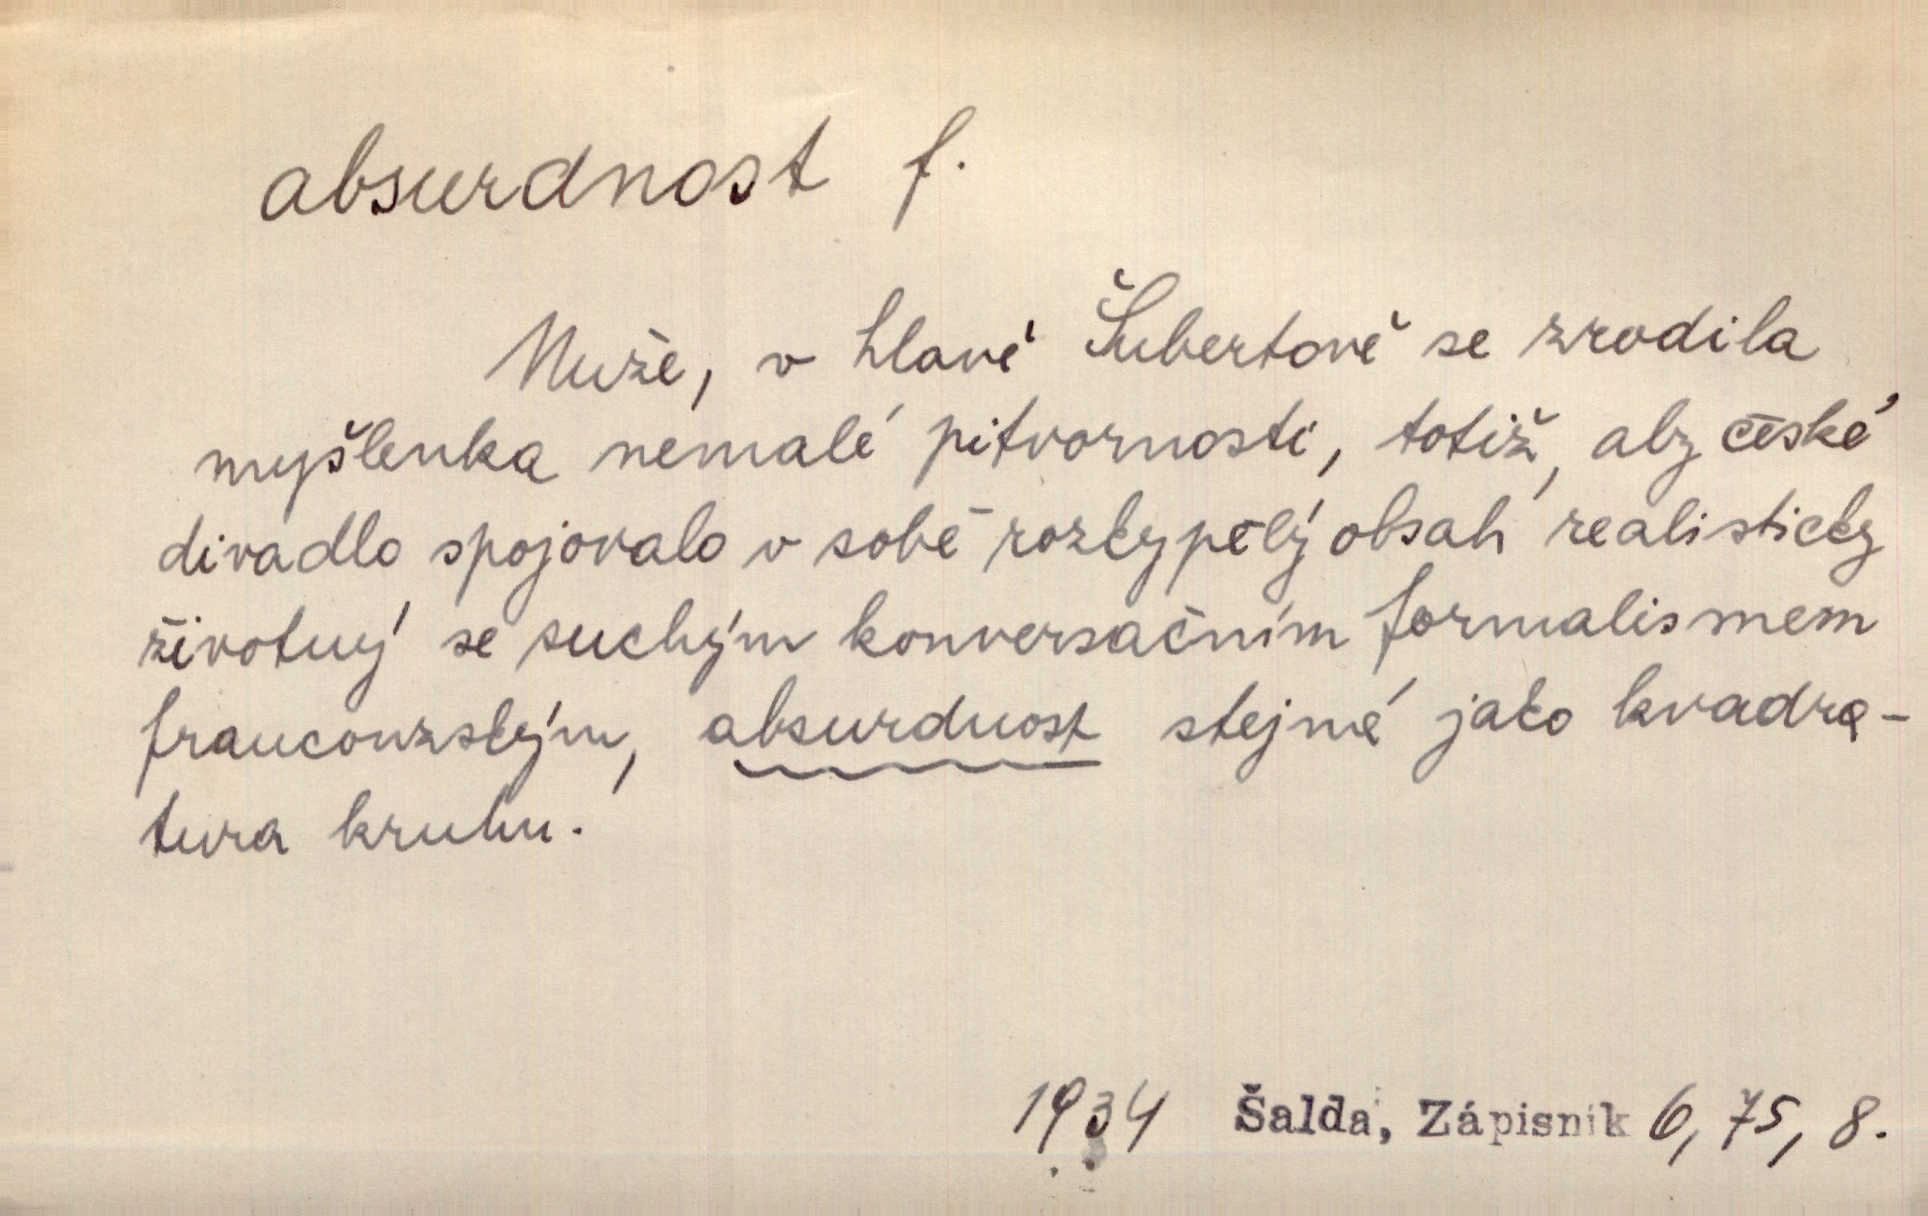 absurdnost f.
Nuže, v hlavě Šubertově se zrodila
myšlenka nemalé pitvornosti, totiž, aby české
divadlo spojovalo v sobě rozkypělý obsah realisticky
životný se suchým konversačním formalismem
francouzským, absurdnost stejně jako kvadra-
tura kruhu.
1934 Šalda, Zápisník 6, 75, 8.